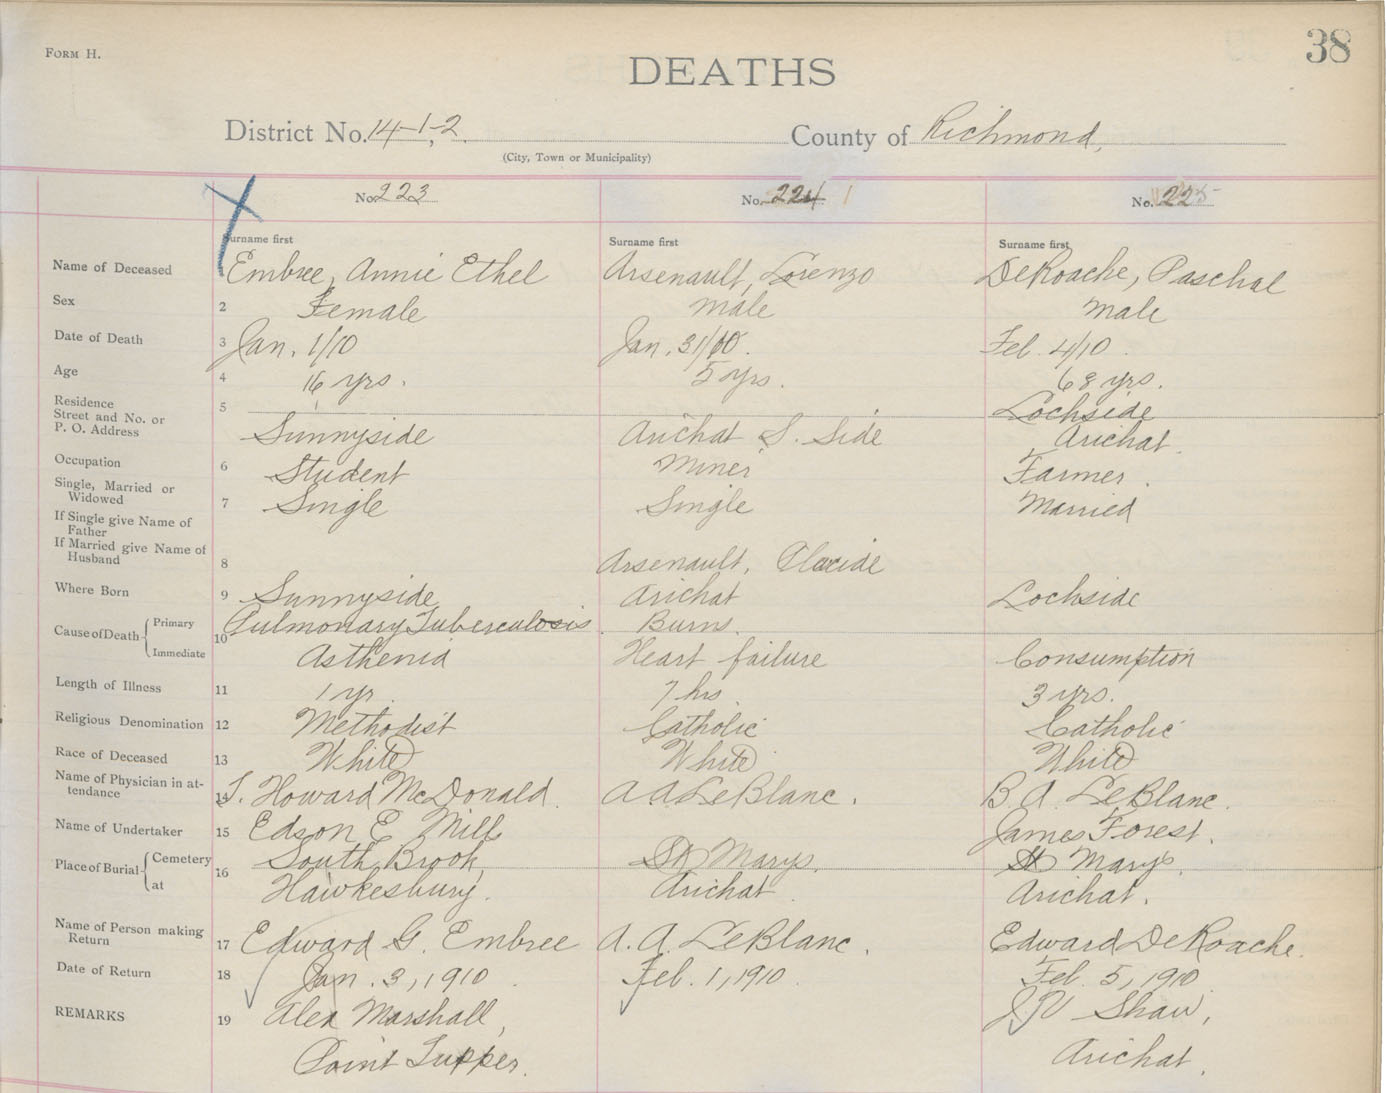 FORM H.
38
DEATHS
District No. 14-1-2
County of Richmond,
(City, Town or Municipality)
No. 223
No. 224 1
No. 225
Surname first
Surname first
Surname first
Name of Deceased Embree, Annie Ethel Arsenault, Lorenzo DeRoache, Paschal
Sex 2 Female Male Male
Date of Death 3 Jan. 1/10 Jan. 31/10. Feb. 4/10
Age 4 16 yrs. 5 yrs. 68 yrs.
Residence 5 Lochside
Street and No. or
P. O. Address Sunnyside Arichat S. Side Arichat.
Occupation 6 Student Miner Farmer.
Single, Married or
Widowed 7 Single Single Married
If Single give Name of
Father
If Married give Name of
Husband 8 Arsenault, Placide
Where Born 9 Sunnyside Arichat Lochside
Cause of Death 10 Primary Pulmonary Tuberculosis. Burns.
Immediate Asthenia Heart failure Consumption
Length of Illness 11 1 yr. 7 hrs 3 yrs.
Religious Denomination 12 Methodist Catholic Catholic
Race of Deceased 13 White White White
Name of Physician in at-
tendance 14 Howard McDonald. A A LeBlanc. B. A. LeBlanc.
Name of Undertaker 15 Edson E Mills James Forest.
Place of Burial 16 Cemetery South Brook, St Marys. St Marys.
at Hawkesbury. Arichat. Arichat.
Name of Person making
Return 17 Edward G. Embree A. A. LeBlanc. Edward DeRoache.
Date of Return 18 Jan. 3, 1910 Feb. 1, 1910 Feb. 5, 1910
REMARKS 19 Alex Marshall, Shaw,
Point Tupper. Arichat.